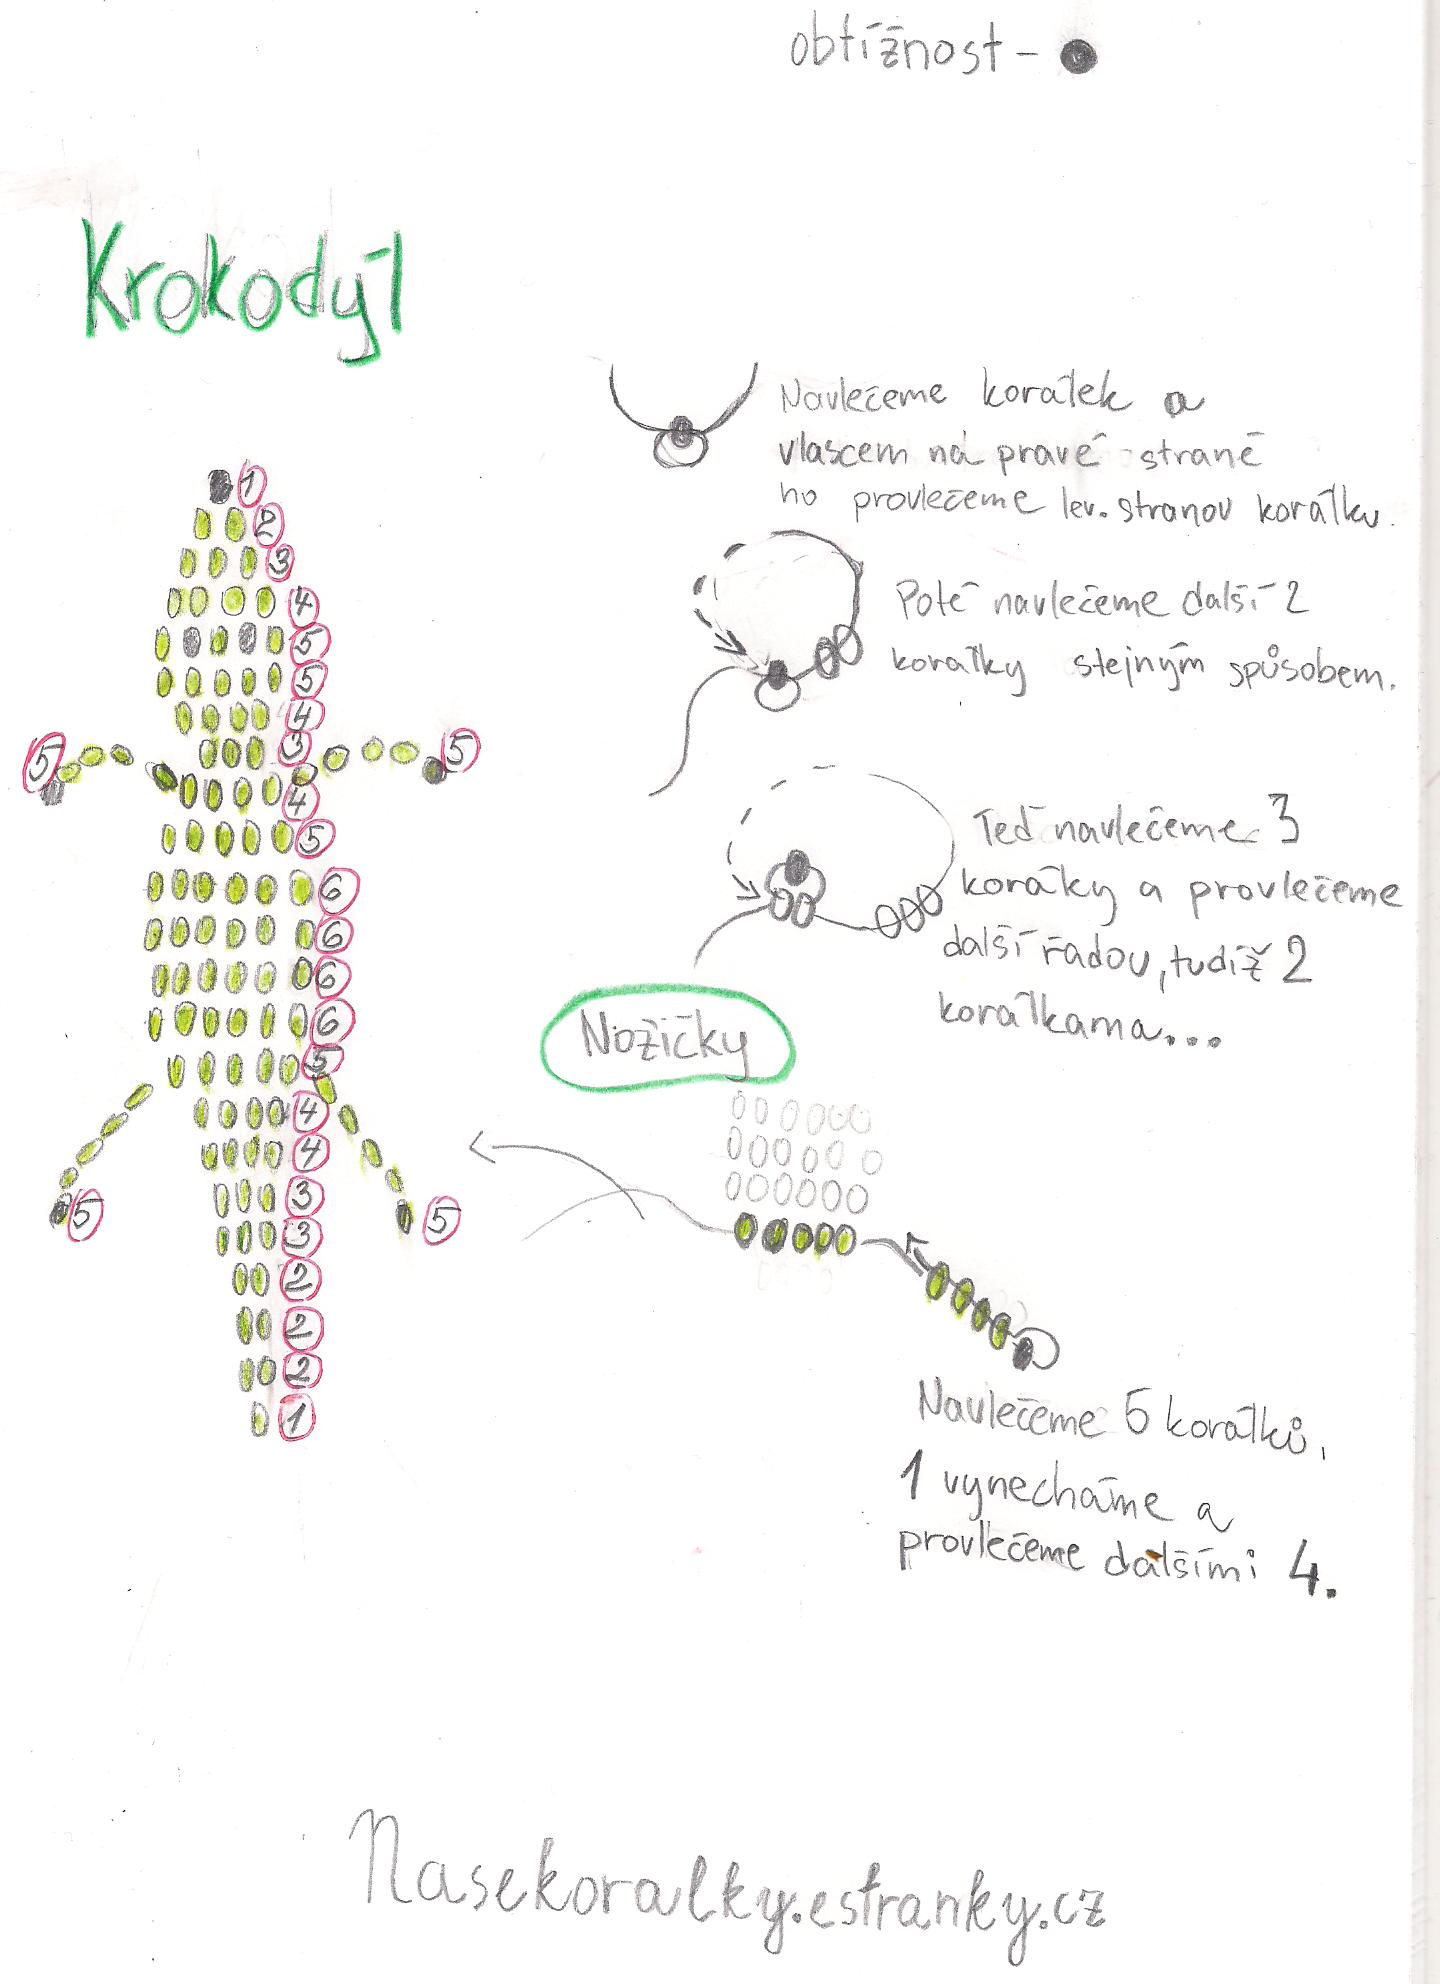 obtížnost -
Krokodýl
Navlečeme korálek a
vlascem na pravé straně
ho provlečeme lev. stranou korálku.
Poté navlečeme další 2
korálky stejným spůsobem.
Teď navlečeme 3
koráky a provlečeme
další řadou, tudíž 2
korálkama...
1
2
3
4
5
5
4
3
5
5
4
5
6
6
6
6
5
4
4
3
3
5
5
2
2
2
1
Nožičky
Navlečeme 5 korálků,
1 vynecháme a
provlečeme dalšími 4.
Nasekoralky.estranky.cz